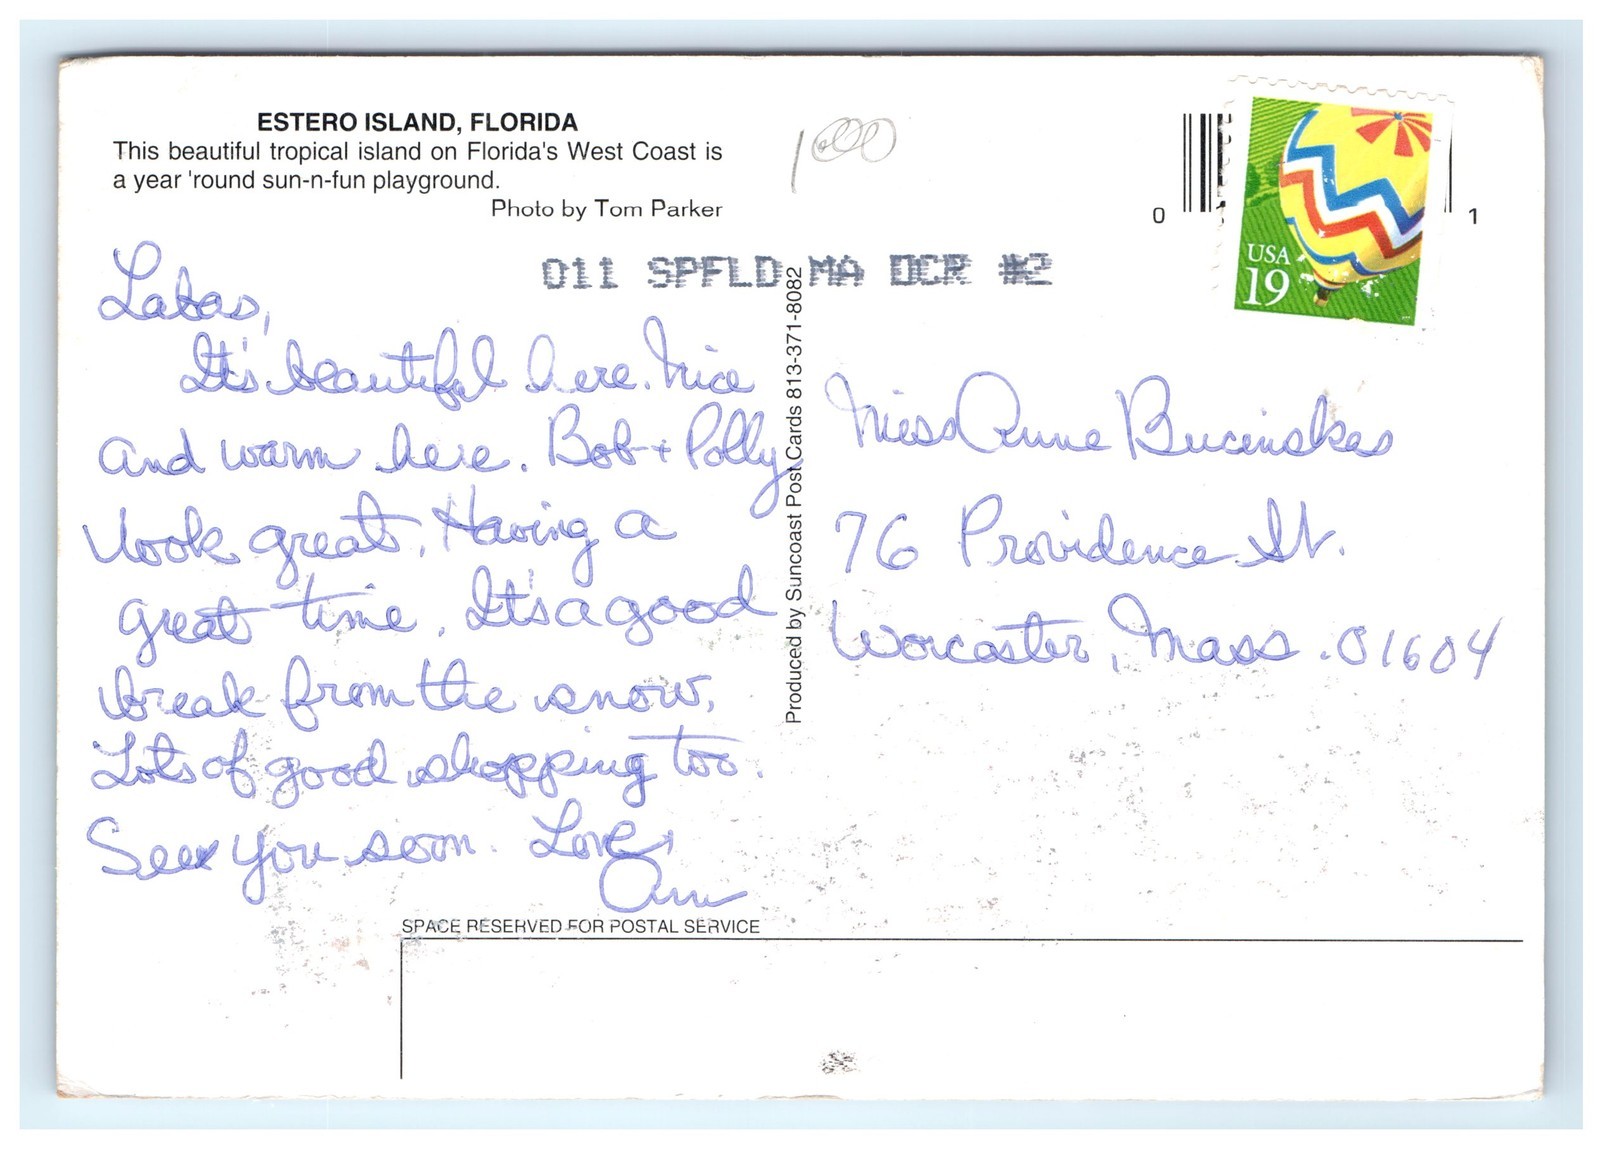 ESTERO ISLAND, FLORIDA
This beautiful tropical island on Florida's West Coast is
a year 'round sun-n-fun playground.
Photo by Tom Parker
1000
0 1
USA
19
011 SPFLD MA DCR #2
Labas,
It's beautiful here. Nice
and warm here. Bob + Polly
look great. Having a
great time. It's a good
break from the snow.
Lots of good shopping too.
See you soon. Love,
Ann
Produced by Suncoast Post Cards 813-371-8082
Miss Anne Bucinskas
76 Providence St.
Worcester, Mass. 01604
SPACE RESERVED FOR POSTAL SERVICE